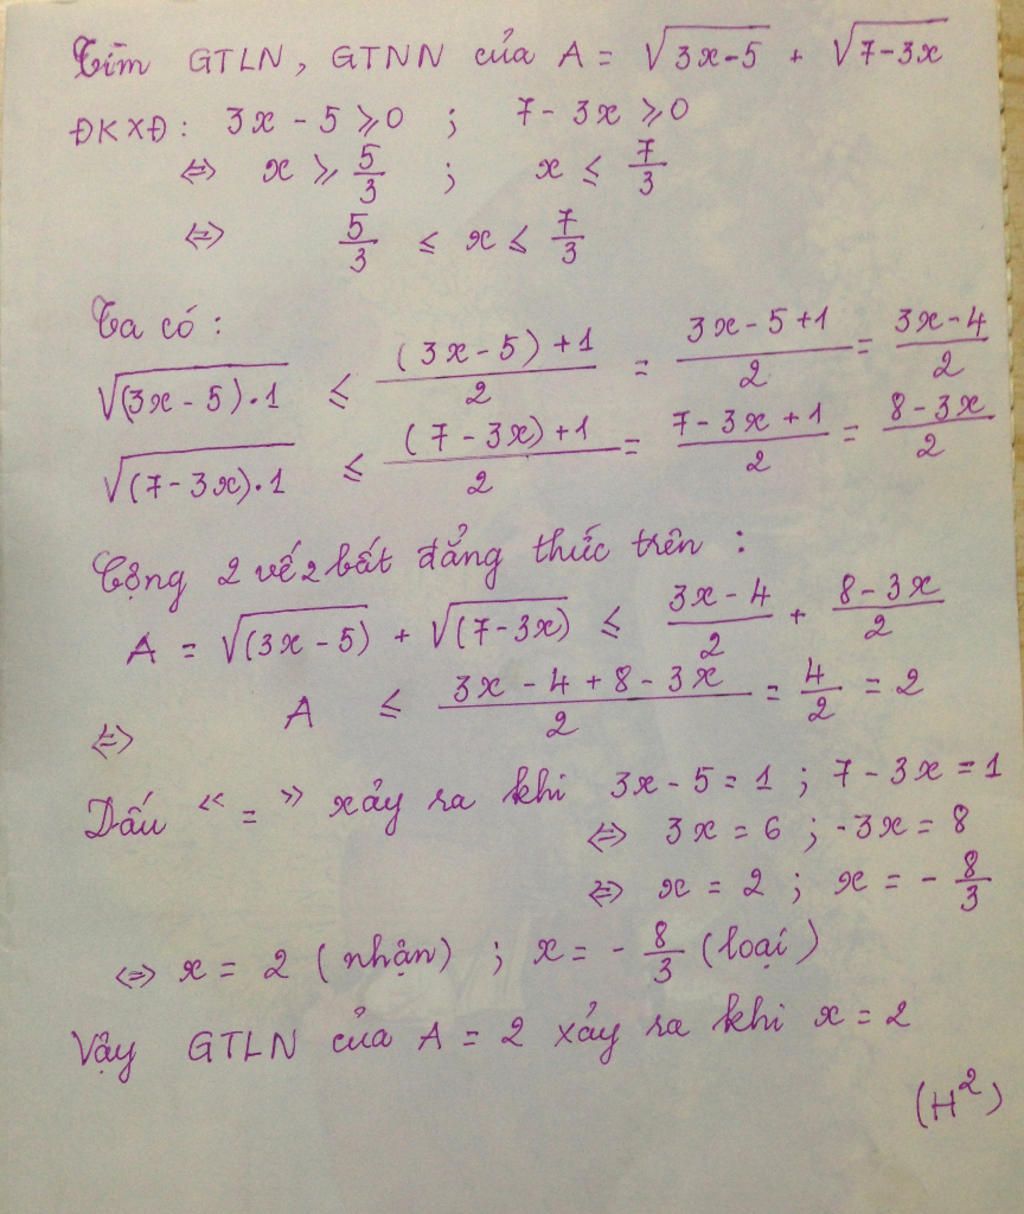 Tìm GTLN, GTNN của A = √(3x-5) + √(7-3x)
ĐKXĐ: 3x - 5 ⩾ 0 ; 7 - 3x ⩾ 0
⇔ x ⩾ 5/3 ; x ⩽ 7/3
⇔ 5/3 ⩽ x ⩽ 7/3
Ta có:
√((3x - 5).1) ⩽ ((3x - 5) + 1)/2 = (3x - 5 + 1)/2 = (3x - 4)/2
√((7 - 3x).1) ⩽ ((7 - 3x) + 1)/2 = (7 - 3x + 1)/2 = (8 - 3x)/2
Cộng 2 vế 2 bất đẳng thức trên :
A = √(3x - 5) + √(7 - 3x) ⩽ (3x - 4)/2 + (8 - 3x)/2
⇔ A ⩽ (3x - 4 + 8 - 3x)/2 = 4/2 = 2
Dấu " = " xảy ra khi 3x - 5 = 1 ; 7 - 3x = 1
⇔ 3x = 6 ; -3x = 8
⇔ x = 2 ; x = - 8/3
⇔ x = 2 (nhận) ; x = - 8/3 (loại)
Vậy GTLN của A = 2 xảy ra khi x = 2
(H²)